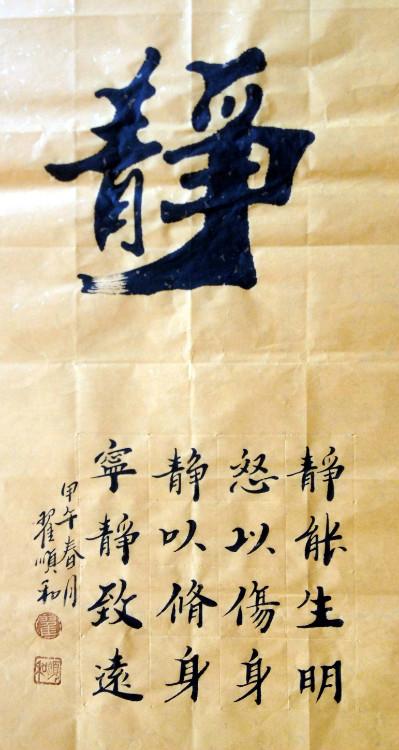 靜
靜能生明
怒以傷身
靜以脩身
寧靜致遠
甲午春月
翟順和
順和